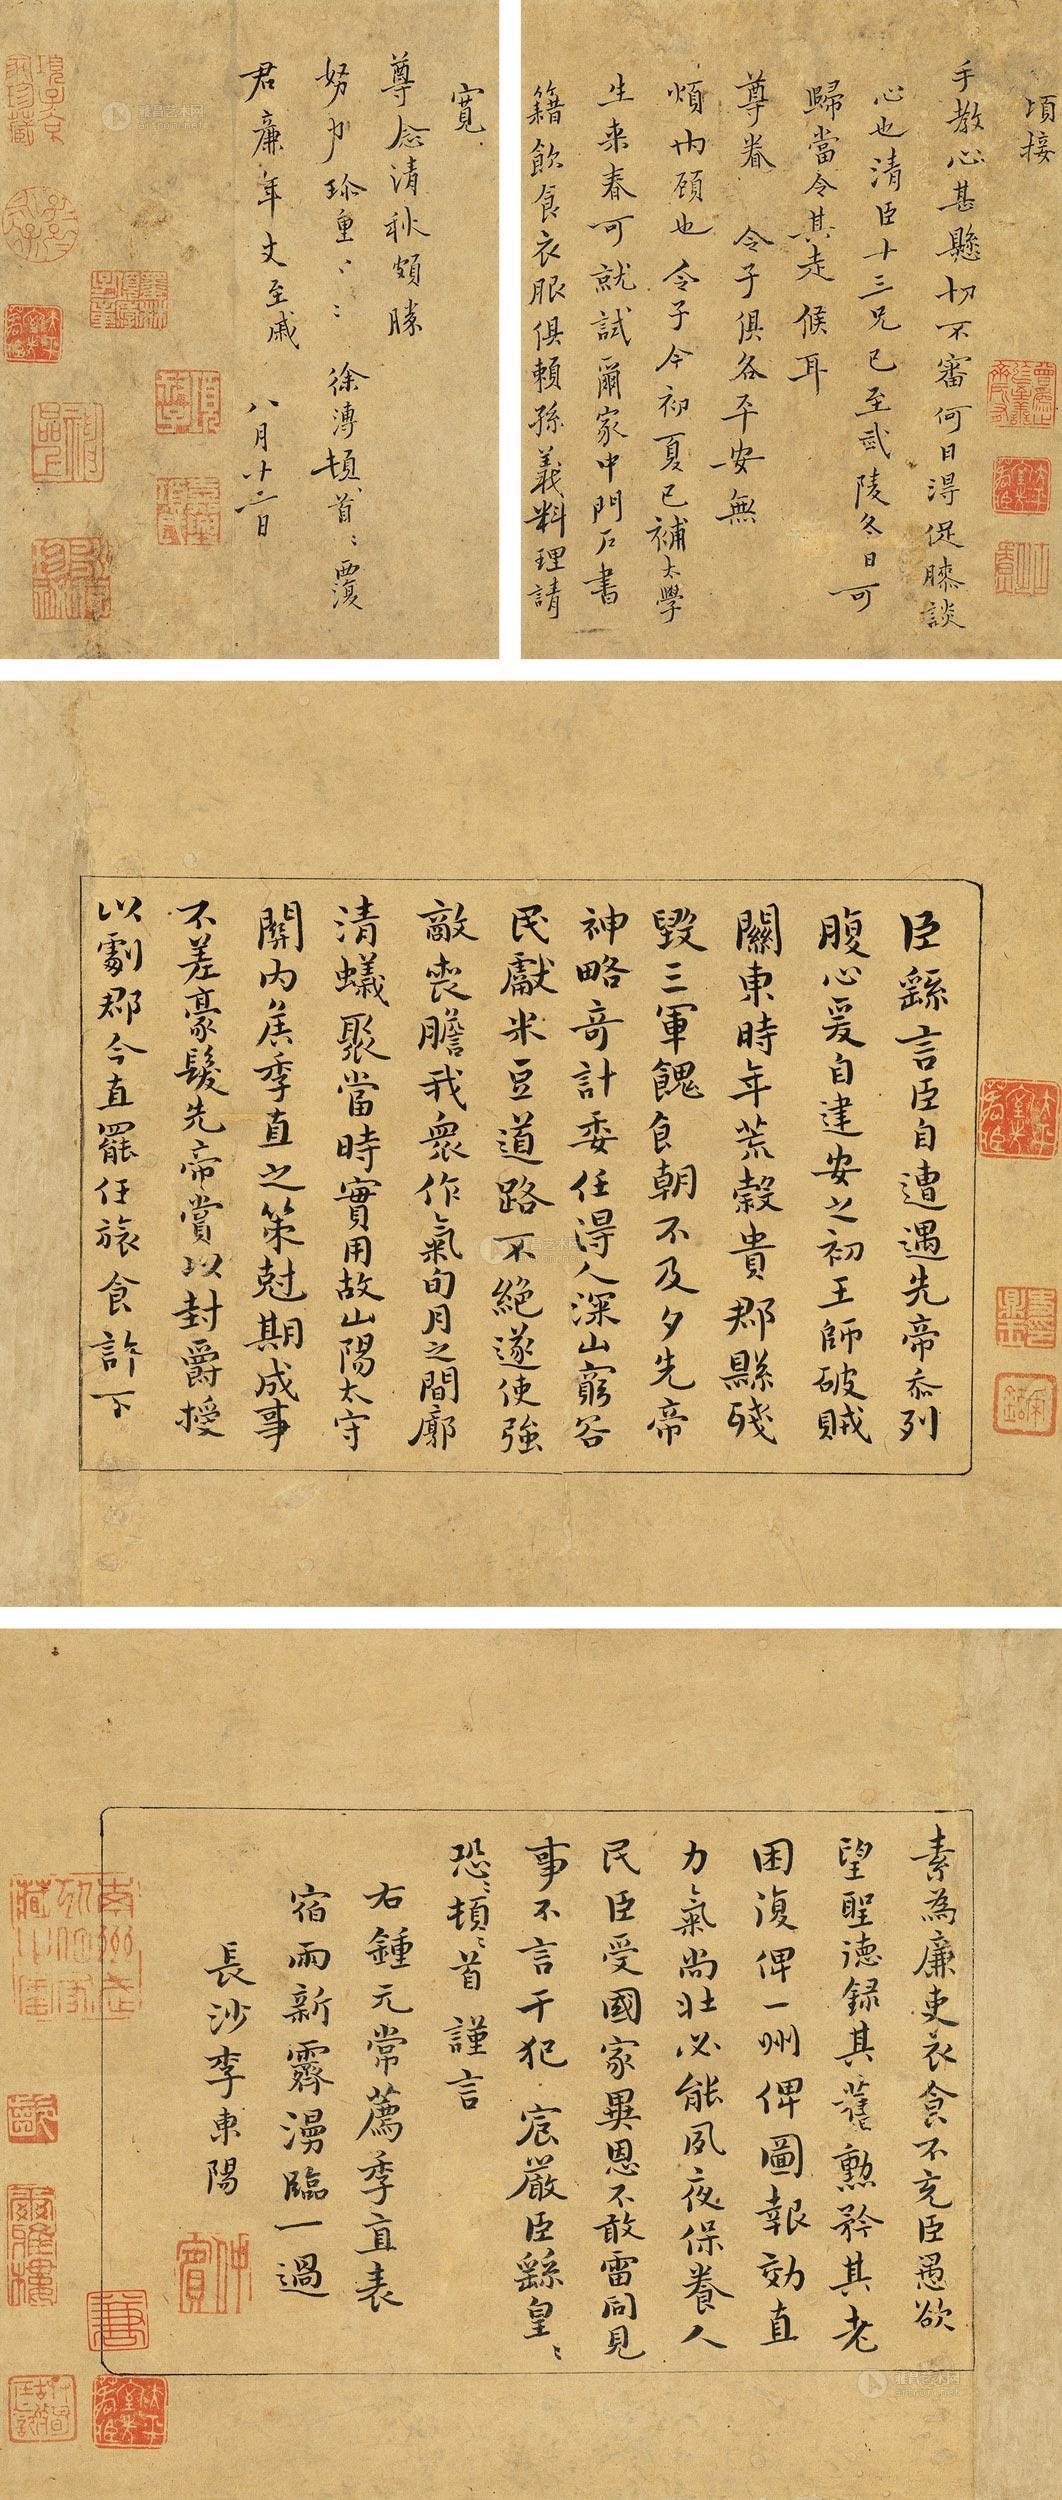 頃接
手教心甚懸切不審何日得促膝談
心也清臣十三兄已至武陵冬日可
歸當令其走候耳
尊眷 令子俱各平安無
煩內顧也 令子今初夏已補太學
生来春可就試爾家中門戶書
籍飲食衣服俱賴孫義料理請
寬
尊念清秋頗勝
努力珍重〻〻 徐溥頓首〻覆
君廉年丈至戚 八月十二日
臣繇言臣自遭遇先帝忝列
腹心爰自建安之初王師破賊
關東時年荒穀貴郡縣殘
毀三軍餽食朝不及夕先帝
神略奇計委任得人深山窮谷
民獻米豆道路不絕遂使強
敵喪膽我衆作氣旬月之間廓
清蟻聚當時實用故山陽太守
關內侯季直之策尅期成事
不差豪髮先帝賞以封爵授
以劇郡今直罷任旅食許下
素為廉吏衣食不充臣愚欲
望聖德録其舊勲矜其老
困復俾一州俾圖報効直
力氣尚壯必能夙夜保養人
民臣受國家異恩不敢雷同見
事不言干犯宸嚴臣繇皇〻
恐〻頓〻首謹言
右鍾元常薦季直表
宿雨新霽漫臨一過
長沙李東陽